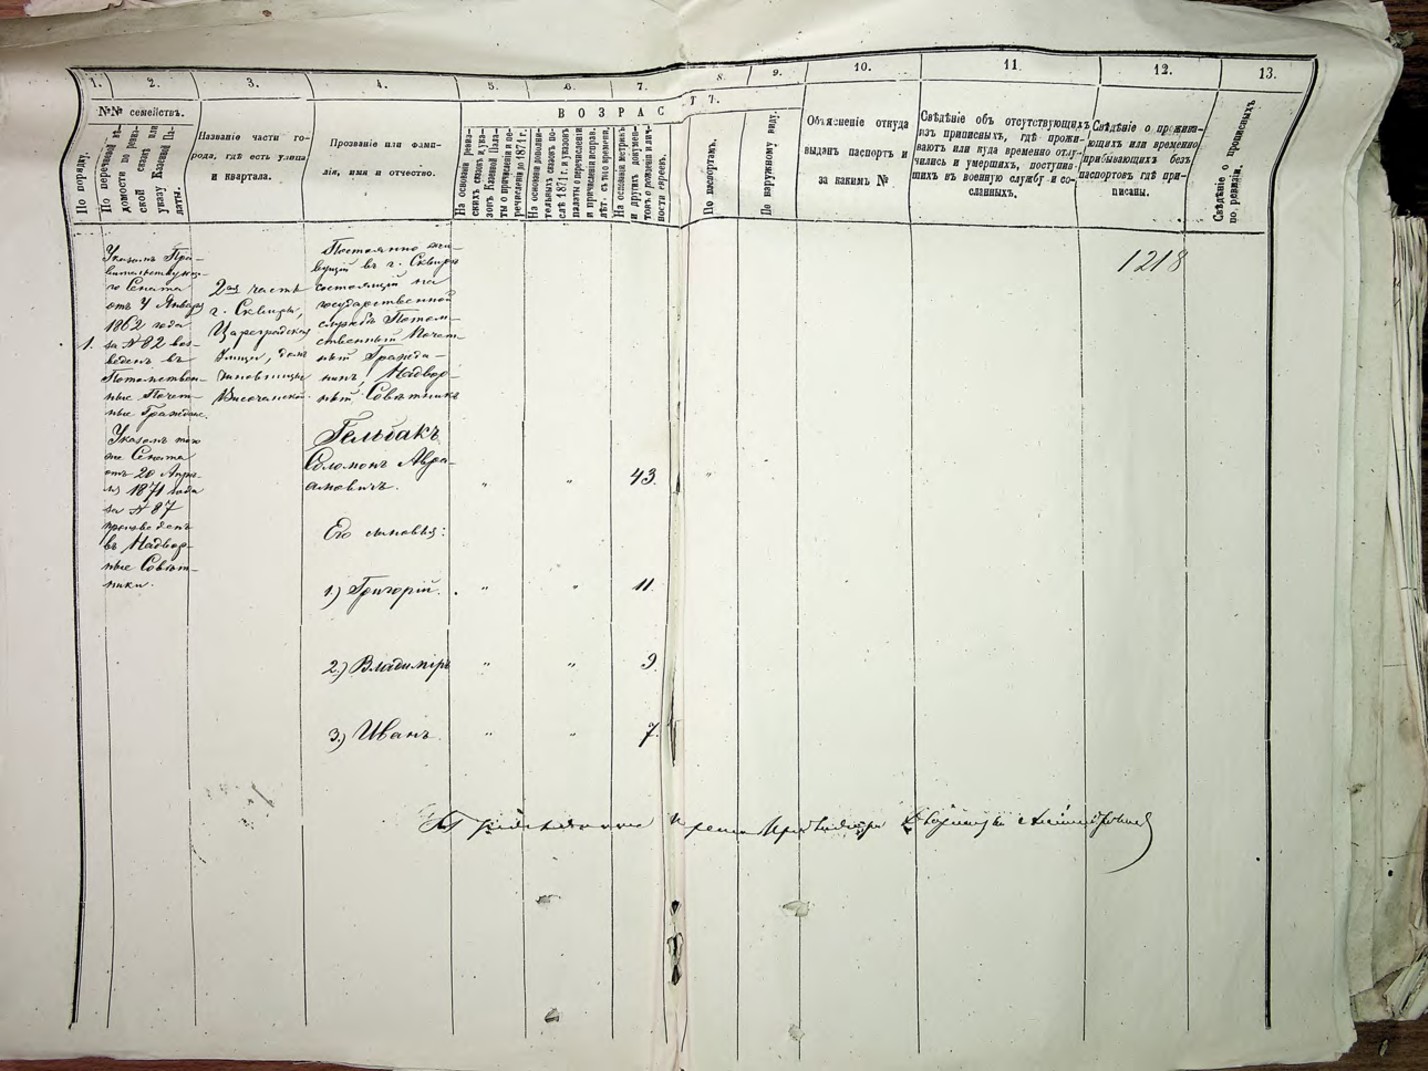 1. 2. 3. 4. 5. 6. 7. 8. 9. 10. 11. 12. 13.
№№ семействъ.
По порядку.
По перечневой вѣ-
домости по ревиз-
ской сказкѣ или
указу Казенной Па-
латы.
Названіе части го-
рода, гдѣ есть улица
и квартала.
Прозваніе или Фами-
лія, имя и отчество.
ВОЗРАСТ
На основаніи ревиз-
скихъ сказокъ и ука-
зовъ Казенной Пала-
ты о причисленіи и пе-
речисленіи до 1871 г.
На основаніи дополни-
тельныхъ сказокъ по-
слѣ 1871 г. и указовъ
палаты о перечисленіи
и причисленіи исправ.
лѣт. съ того времени.
На основаніи метрикъ
и другихъ докумен-
товъ о рожденіи и лич-
ности евреевъ.
По паспортамъ.
По наружному виду.
Объясненіе откуда
выданъ паспортъ и
за какимъ №
Свѣдѣніе объ отсутствующихъ
изъ приписныхъ, гдѣ прожи-
ваютъ или куда временно отлу-
чились и умершихъ, поступив-
шихъ въ военную службу и со-
сланныхъ.
Свѣдѣніе о прожива-
ющихъ или временно
прибывающихъ безъ
паспортовъ гдѣ при-
писаны.
Свѣдѣніе о прописныхъ
по ревизіи.
1.
Указомъ Пра-
вительствующа-
го Сената
отъ 4 Января
1862 года
за № 82 воз-
веденъ въ
Потомствен-
ные Почет-
ные Граждане.
Указомъ того
же Сената
отъ 20 Апрѣ-
ля 1871 года
за № 87
произведенъ
въ Надвор-
ные Совѣт-
ники.
2ая часть
г. Сквиры,
Цареградская
улица, домъ
чиновницы
Постоянно жи-
вущій въ г. Сквирѣ
состоящій на
государственной
службѣ Потом-
ственный Почет-
ный Гражда-
нинъ, Надвор-
ный Совѣтникъ
Гельбакъ
Соломонъ Авра-
амовичъ. " " 43. "
Его сыновья:
1.) Григорій. " " 11.
2.) Владиміръ " " 9.
3.) Иванъ. " " 7.
1218